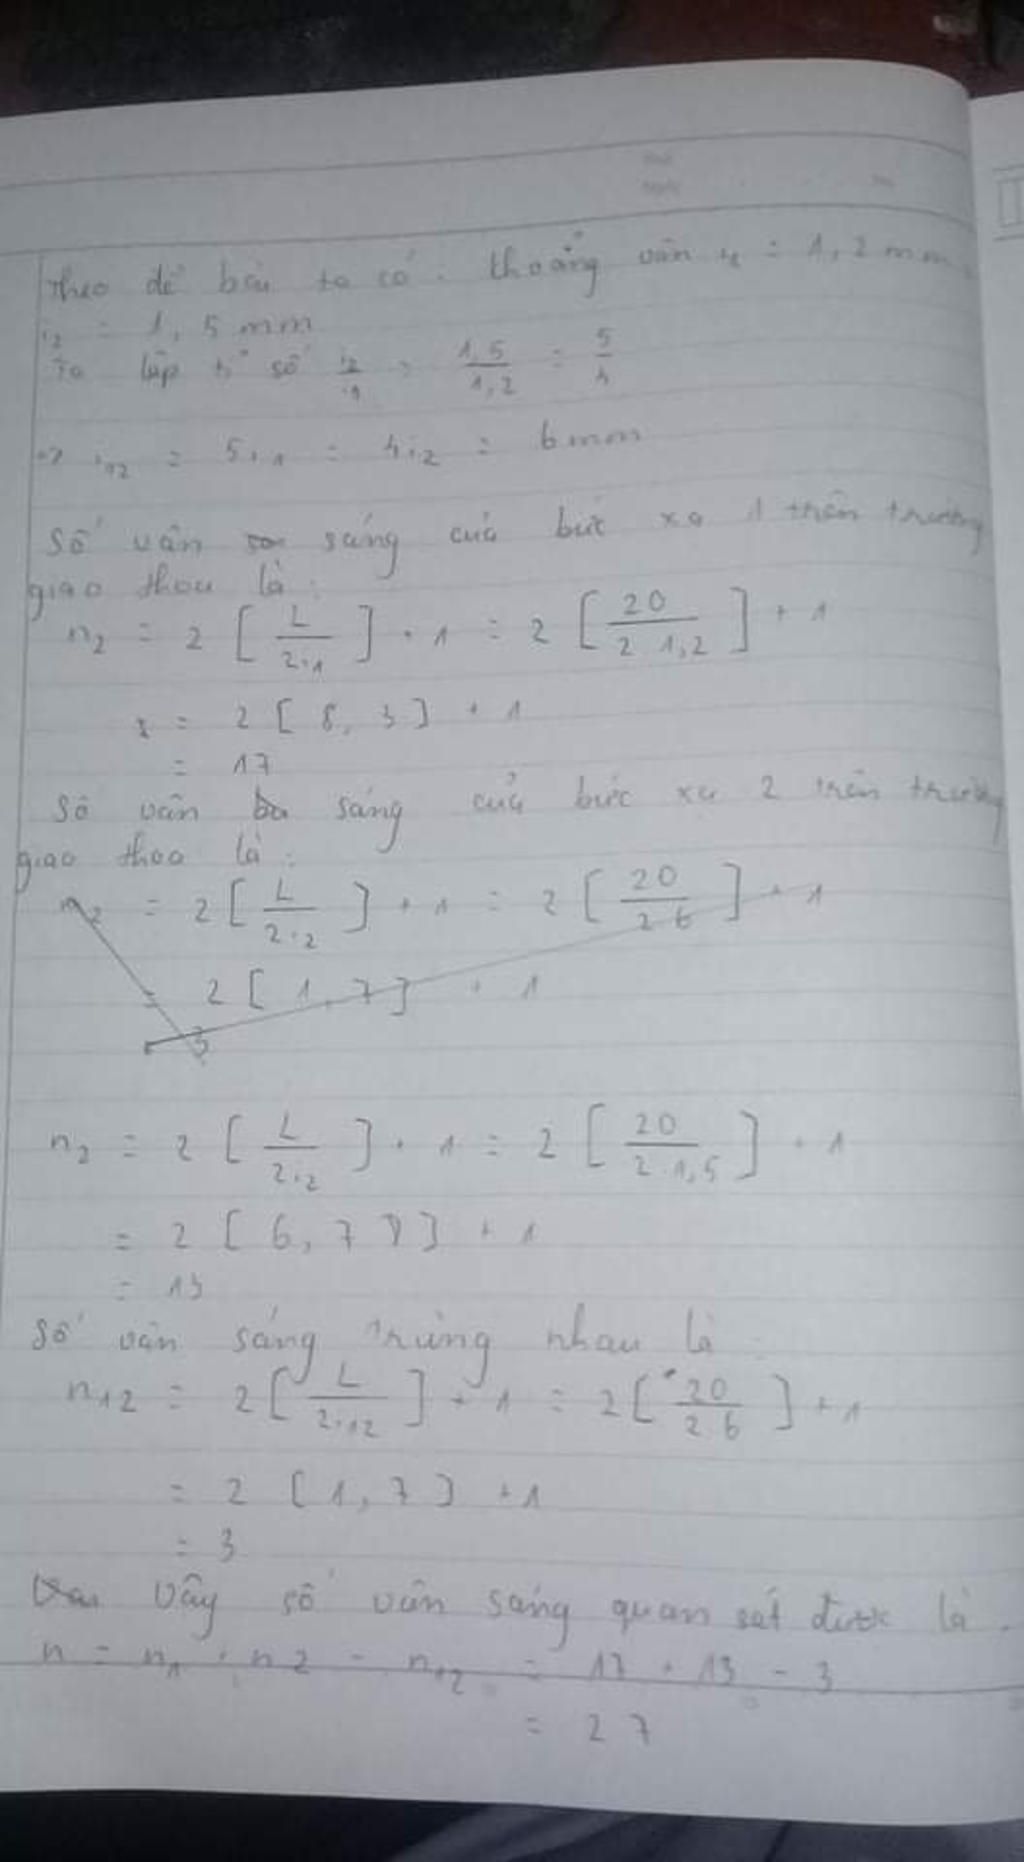 Theo đề bài ta có. khoảng vân i1 = 1,2 mm,
i2 = 1,5 mm
Ta lập tỉ số i2/i1 = 1,5/1,2 = 5/4
=> i12 = 5i1 = 4i2 = 6mm
Số vân sáng của bức xạ 1 trên trường
giao thoa là:
n2 = 2 [L/2i1] + 1 = 2 [20/2.1,2] + 1
= 2 [8,3] + 1
= 17
Số vân sáng của bức xạ 2 trên trường
giao thoa là:
n2 = 2 [L/2i2] + 1 = 2 [20/2.6] + 1
= 2 [1,7] + 1
3
n2 = 2 [L/2i2] + 1 = 2 [20/2.1,5] + 1
= 2 [6,7] + 1
= 13
Số vân sáng trùng nhau là
n12 = 2 [L/2i12] + 1 = 2 [20/2.6] + 1
= 2 [1,7] + 1
= 3
Vậy số vân sáng quan sát được là.
n = n1 + n2 - n12 = 17 + 13 - 3
= 27